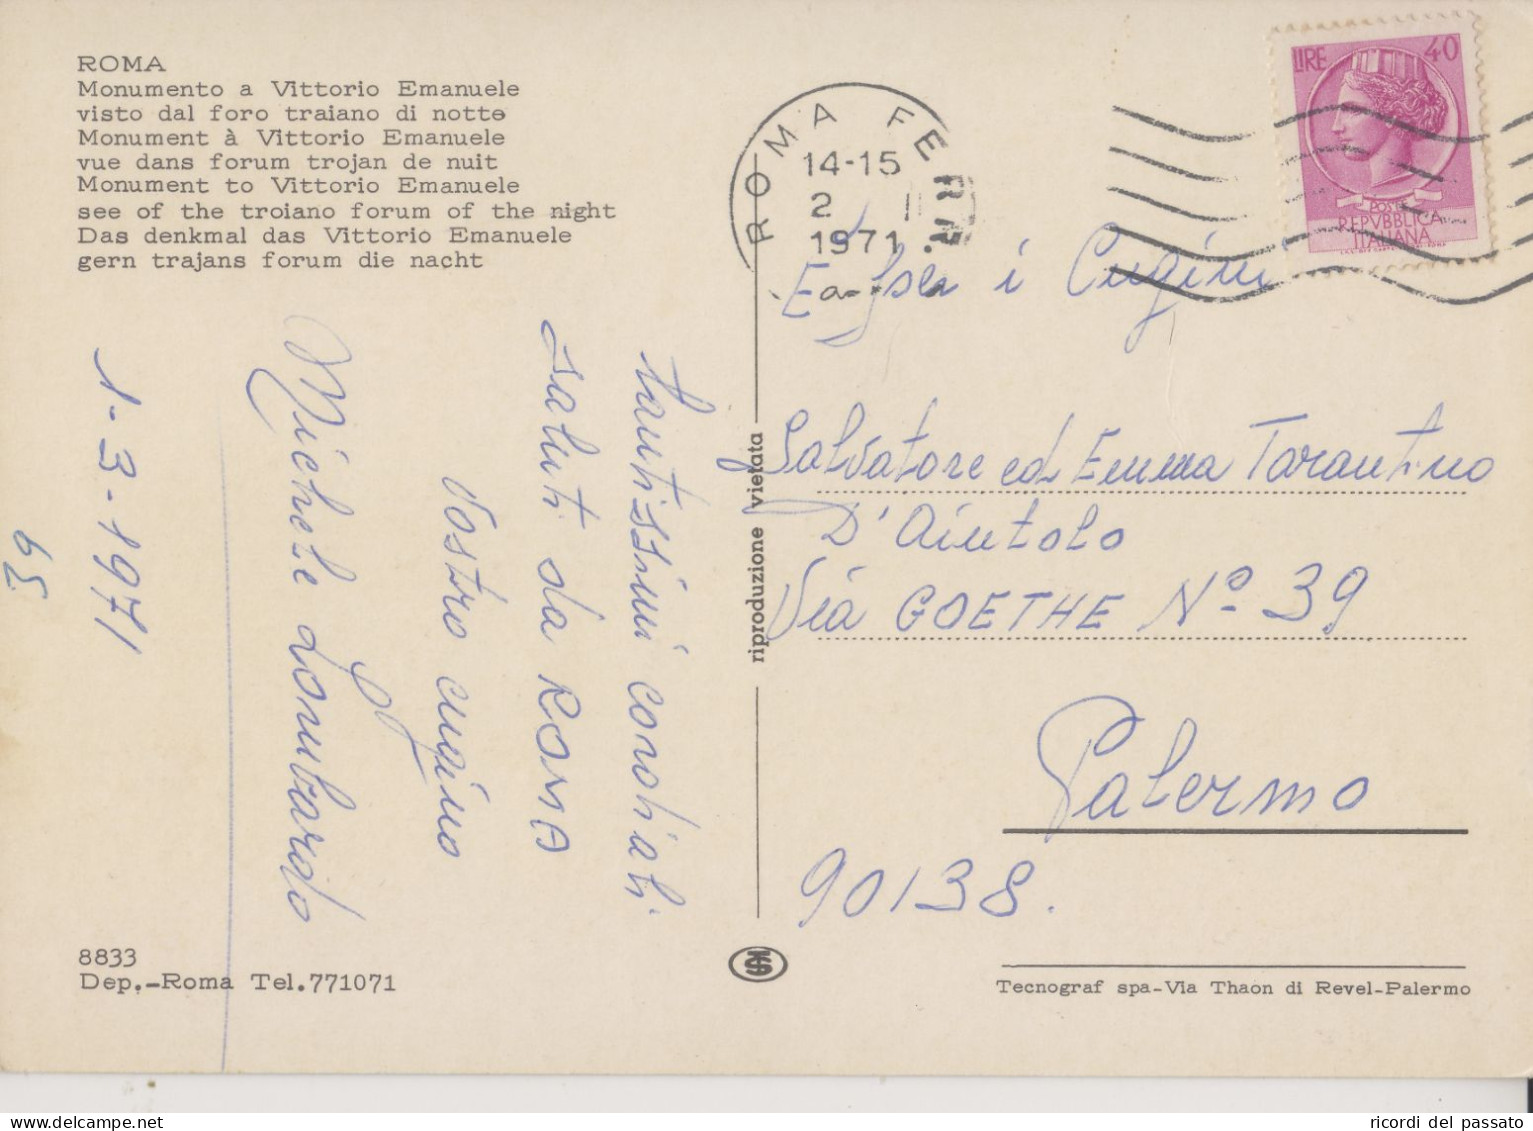 ROMA
Monumento a Vittorio Emanuele
visto dal foro traiano di notte
Monument à Vittorio Emanuele
vue dans forum trojan de nuit
Monument to Vittorio Emanuele
see of the troiano forum of the night
Das denkmal das Vittorio Emanuele
gern trajans forum die nacht
Tantissimi cordiali
saluti da ROMA
Vostro cugino
Michele Lombardo
1-3-1971
65
8833
Dep.-Roma Tel.771071
riproduzione vietata
ROMA FERR.
14-15
2
1971
LIRE 40
POSTE
REPVBBLICA
ITALIANA
i Cugini
Salvatore ed Emma Tarantino
D'Aiutolo
Via GOETHE Nº 39
Palermo
90138.
Tecnograf spa-Via Thaon di Revel-Palermo
ricordi del passato